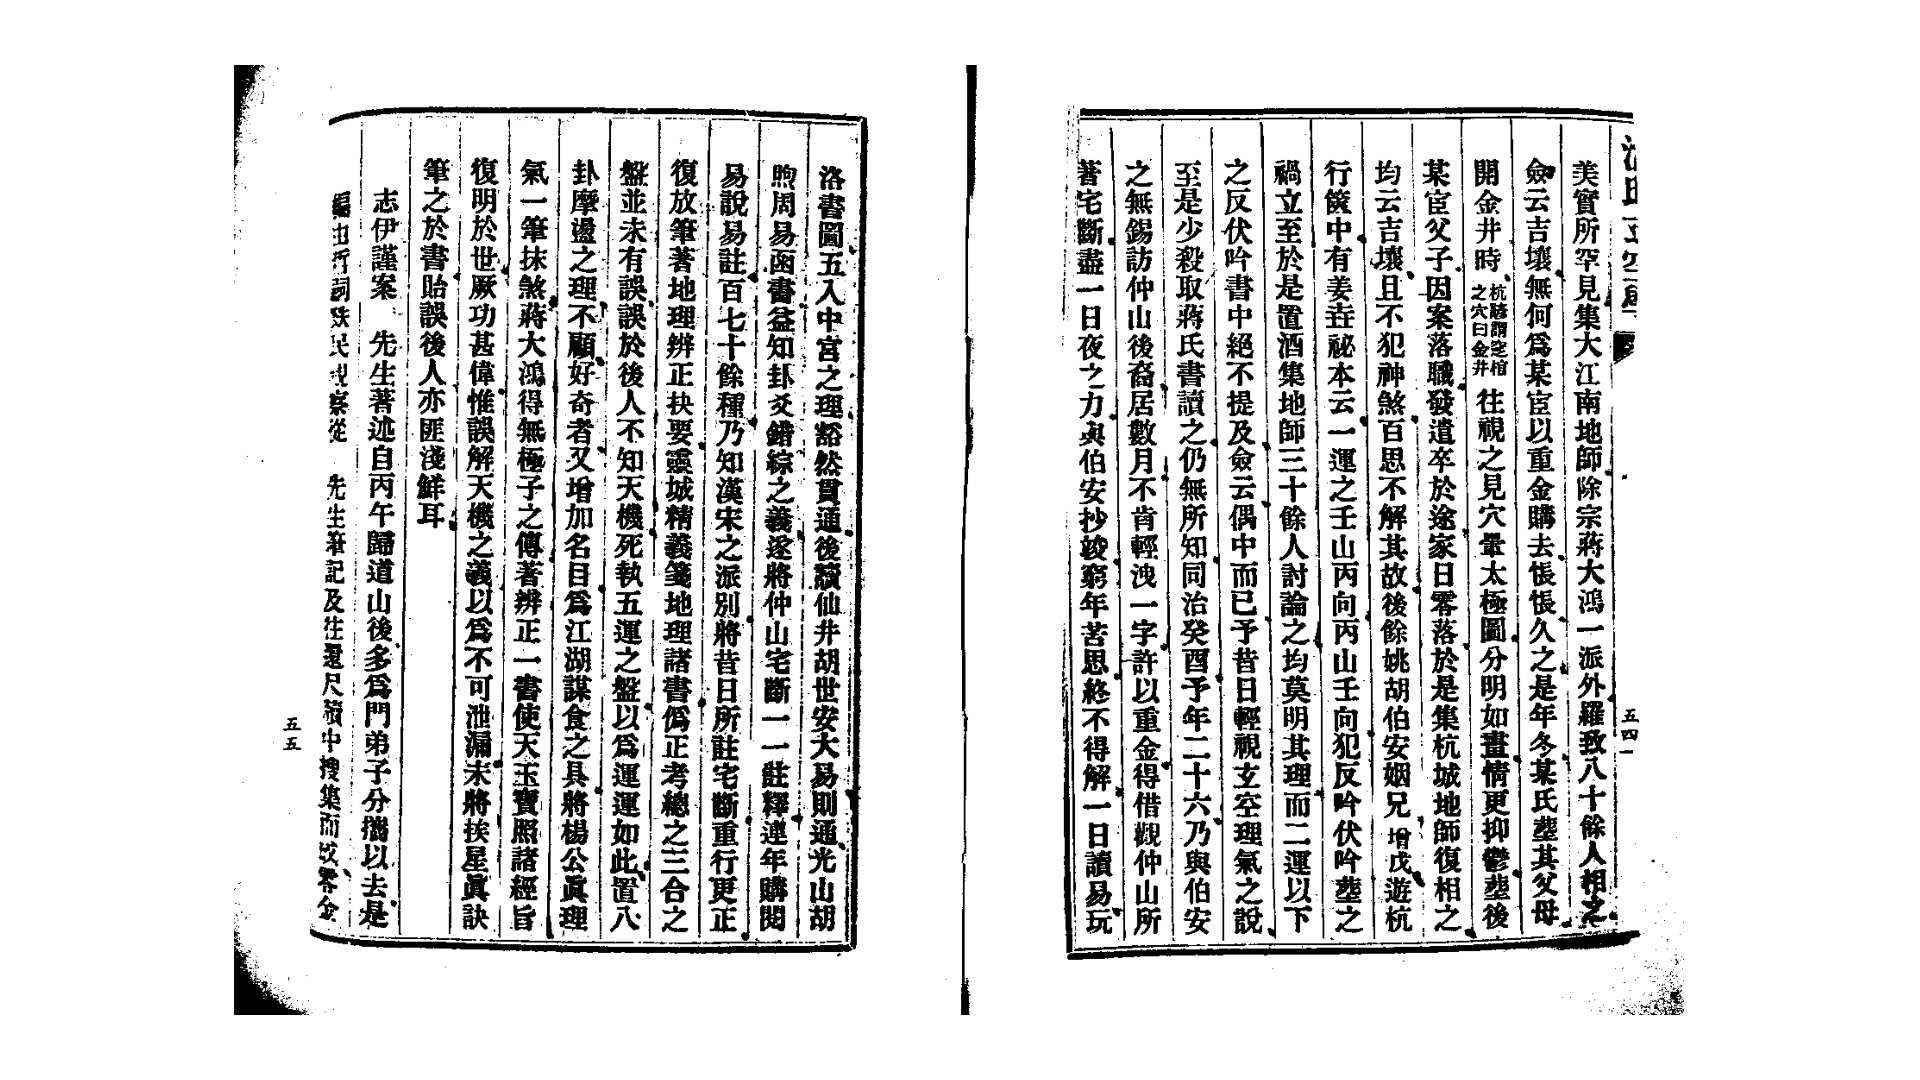 美實所罕見集大江南地師除宗蔣大鴻一派外羅致八十餘人相之
僉云吉壤無何爲某宦以重金購去悵悵久之是年冬某氏塟其父母
開金井時杭諺謂窆棺之穴曰金井往視之見穴暈太極圖分明如畫情更抑鬱塟後
某宦父子因案落職發遣卒於途家日零落於是集杭城地師復相之
均云吉壤且不犯神煞百思不解其故後餘姚胡伯安姻兄增戊遊杭
行篋中有姜垚祕本云一運之壬山丙向丙山壬向犯反吟伏吟塟之
禍立至於是置酒集地師三十餘人討論之均莫明其理而二運以下
之反伏吟書中絕不提及僉云偶中而已予昔日輕視玄空理氣之說
至是少殺取蔣氏書讀之仍無所知同治癸酉予年二十六乃與伯安
之無錫訪仲山後裔居數月不肯輕洩一字許以重金得借觀仲山所
著宅斷盡一日夜之力與伯安抄竣窮年苦思終不得解一日讀易玩
五四一
洛書圖五入中宮之理豁然貫通後讀仙井胡世安大易則通光山胡
煦周易函書益知卦爻錯綜之義遂將仲山宅斷一一註釋連年購閱
易說易註百七十餘種乃知漢宋之派別將昔日所註宅斷重行更正
復放筆著地理辨正抉要靈城精義箋地理諸書僞正考總之三合之
盤並未有誤誤於後人不知天機死執五運之盤以爲運運如此置八
卦摩盪之理不顧好奇者又增加名目爲江湖謀食之具將楊公眞理
氣一筆抹煞蔣大鴻得無極子之傳著辨正一書使天玉寶照諸經旨
復明於世厥功甚偉惟誤解天機之義以爲不可泄漏未將挨星眞訣
筆之於書貽誤後人亦匪淺鮮耳
志伊謹案 先生著述自丙午歸道山後多爲門弟子分攜以去是
編 先生筆記及往還尺牘中搜集而 零金
五五